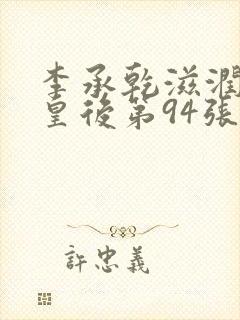 李承乾滋潤
皇後第94張
許忠義